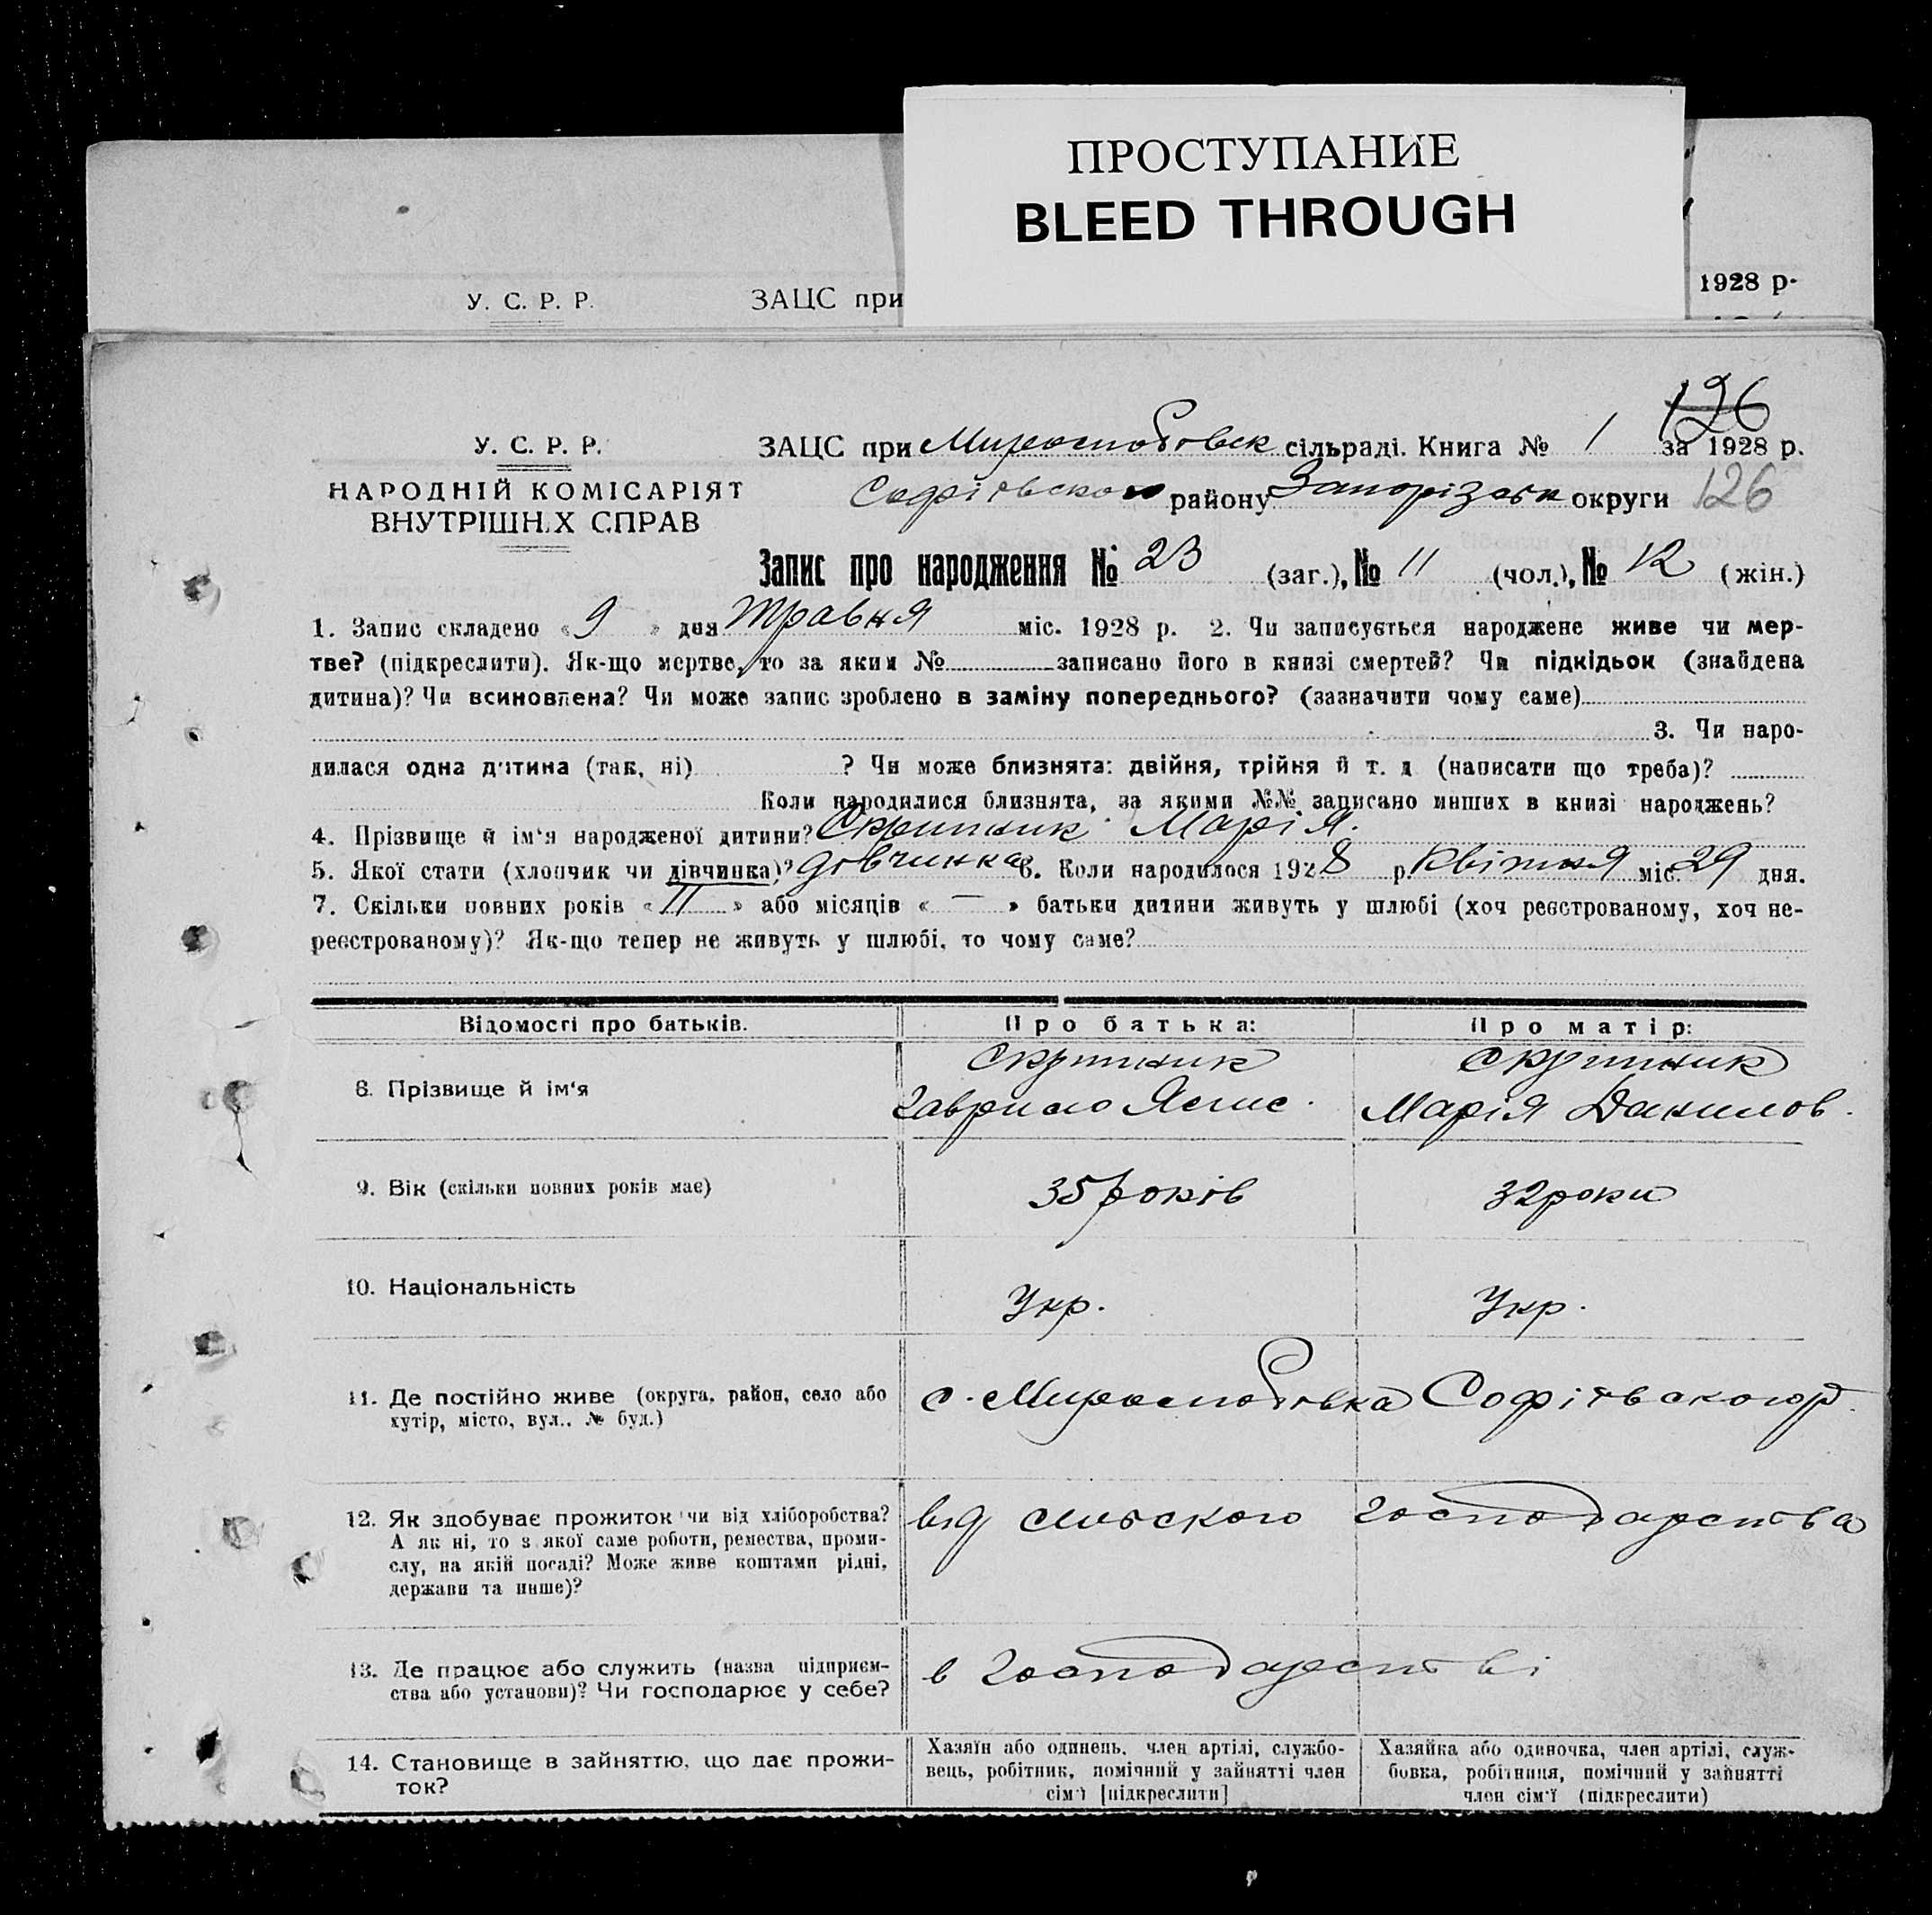 ПРОСТУПАНИЕ
BLEED THROUGH
У. С. Р. Р. ЗАЦС при 1928 р.
126
У. С. Р. Р. ЗАЦС при сільраді. Книга № 1 за 1928 р.
НАРОДНІЙ КОМІСАРІЯТ Софіївского району Запорізськ округи 126
ВНУТРІШНІХ СПРАВ
Запис про народження № 23 (заг.), № 11 (чол.), № 12 (жін.)
1. Запис складено « 9 » дня травня міс. 1928 р. 2. Чи записується народжене живе чи мер-
тве? (підкреслити). Як-що мертве, то за яким № записано його в книзі смертей? Чи підкідьок (знайдена
дитина)? Чи всиновлена? Чи може запис зроблено в заміну попереднього? (зазначити чому саме)
3. Чи наро-
дилася одна дитина (так, ні) ? Чи може близнята: двійня, трійня й т. д (написати що треба)?
Коли народилися близнята, за якими №№ записано инших в книзі народжень?
4. Прізвище й ім'я народженої дитини? Скрипник Марія.
5. Якої стати (хлопчик чи дівчинка)? дівчинка 6. Коли народилося 1928 р. Квітня міс. 29 дня.
7. Скільки повних років « 11 » або місяців « — » батьки дитини живуть у шлюбі (хоч реєстрованому, хоч не-
реєстрованому)? Як-що тепер не живуть у шлюбі, то чому саме?
Відомості про батьків. Про батька: Про матір:
Скрипник Скрипник
8. Прізвище й ім'я Гаврило Марія Данилов.
9. Вік (скільки повних років має) 35 років 32 роки
10. Національність Укр. Укр.
11. Де постійно живе (округа, район, село або с. Софіївского р.
хутір, місто, вул., № буд.)
12. Як здобуває прожиток чи від хліборобства? від сільского господарства
А як ні, то з якої саме роботи, ремества, проми-
слу, на якій посаді? Може живе коштами рідні,
держави та инше)?
13. Де працює або служить (назва підприєм- в господарстві
ства або установи)? Чи господарює у себе?
14. Становище в зайняттю, що дає прожи- Хазяїн або одинець, член артілі, службо- Хазяйка або одиночка, член артілі, служ-
ток? вець, робітник, помічний у зайнятті член бовка, робітниця, помічний у зайнятті
сім'ї [підкреслити] член сім'ї (підкреслити)